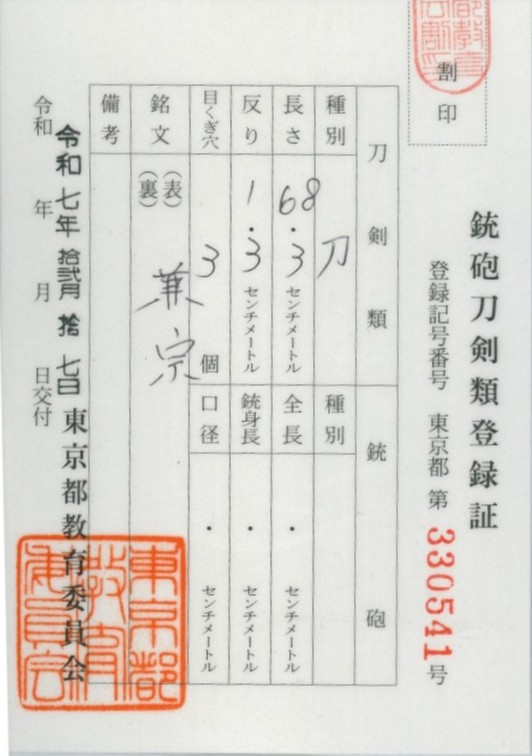 銃砲刀剣類登録証
割印
登録記号番号 東京都 第 330541 号
刀剣類
種別 刀
長さ 68.3 センチメートル
反り 1.3 センチメートル
目くぎ穴 3 個
銘文 (表) 兼宗
(裏)
備考
銃砲
種別
全長 . センチメートル
銃身長 . センチメートル
口径 . センチメートル
令和 年 月 日交付
令和七年拾弐月拾七日
東京都教育委員会
東京都教育委員会